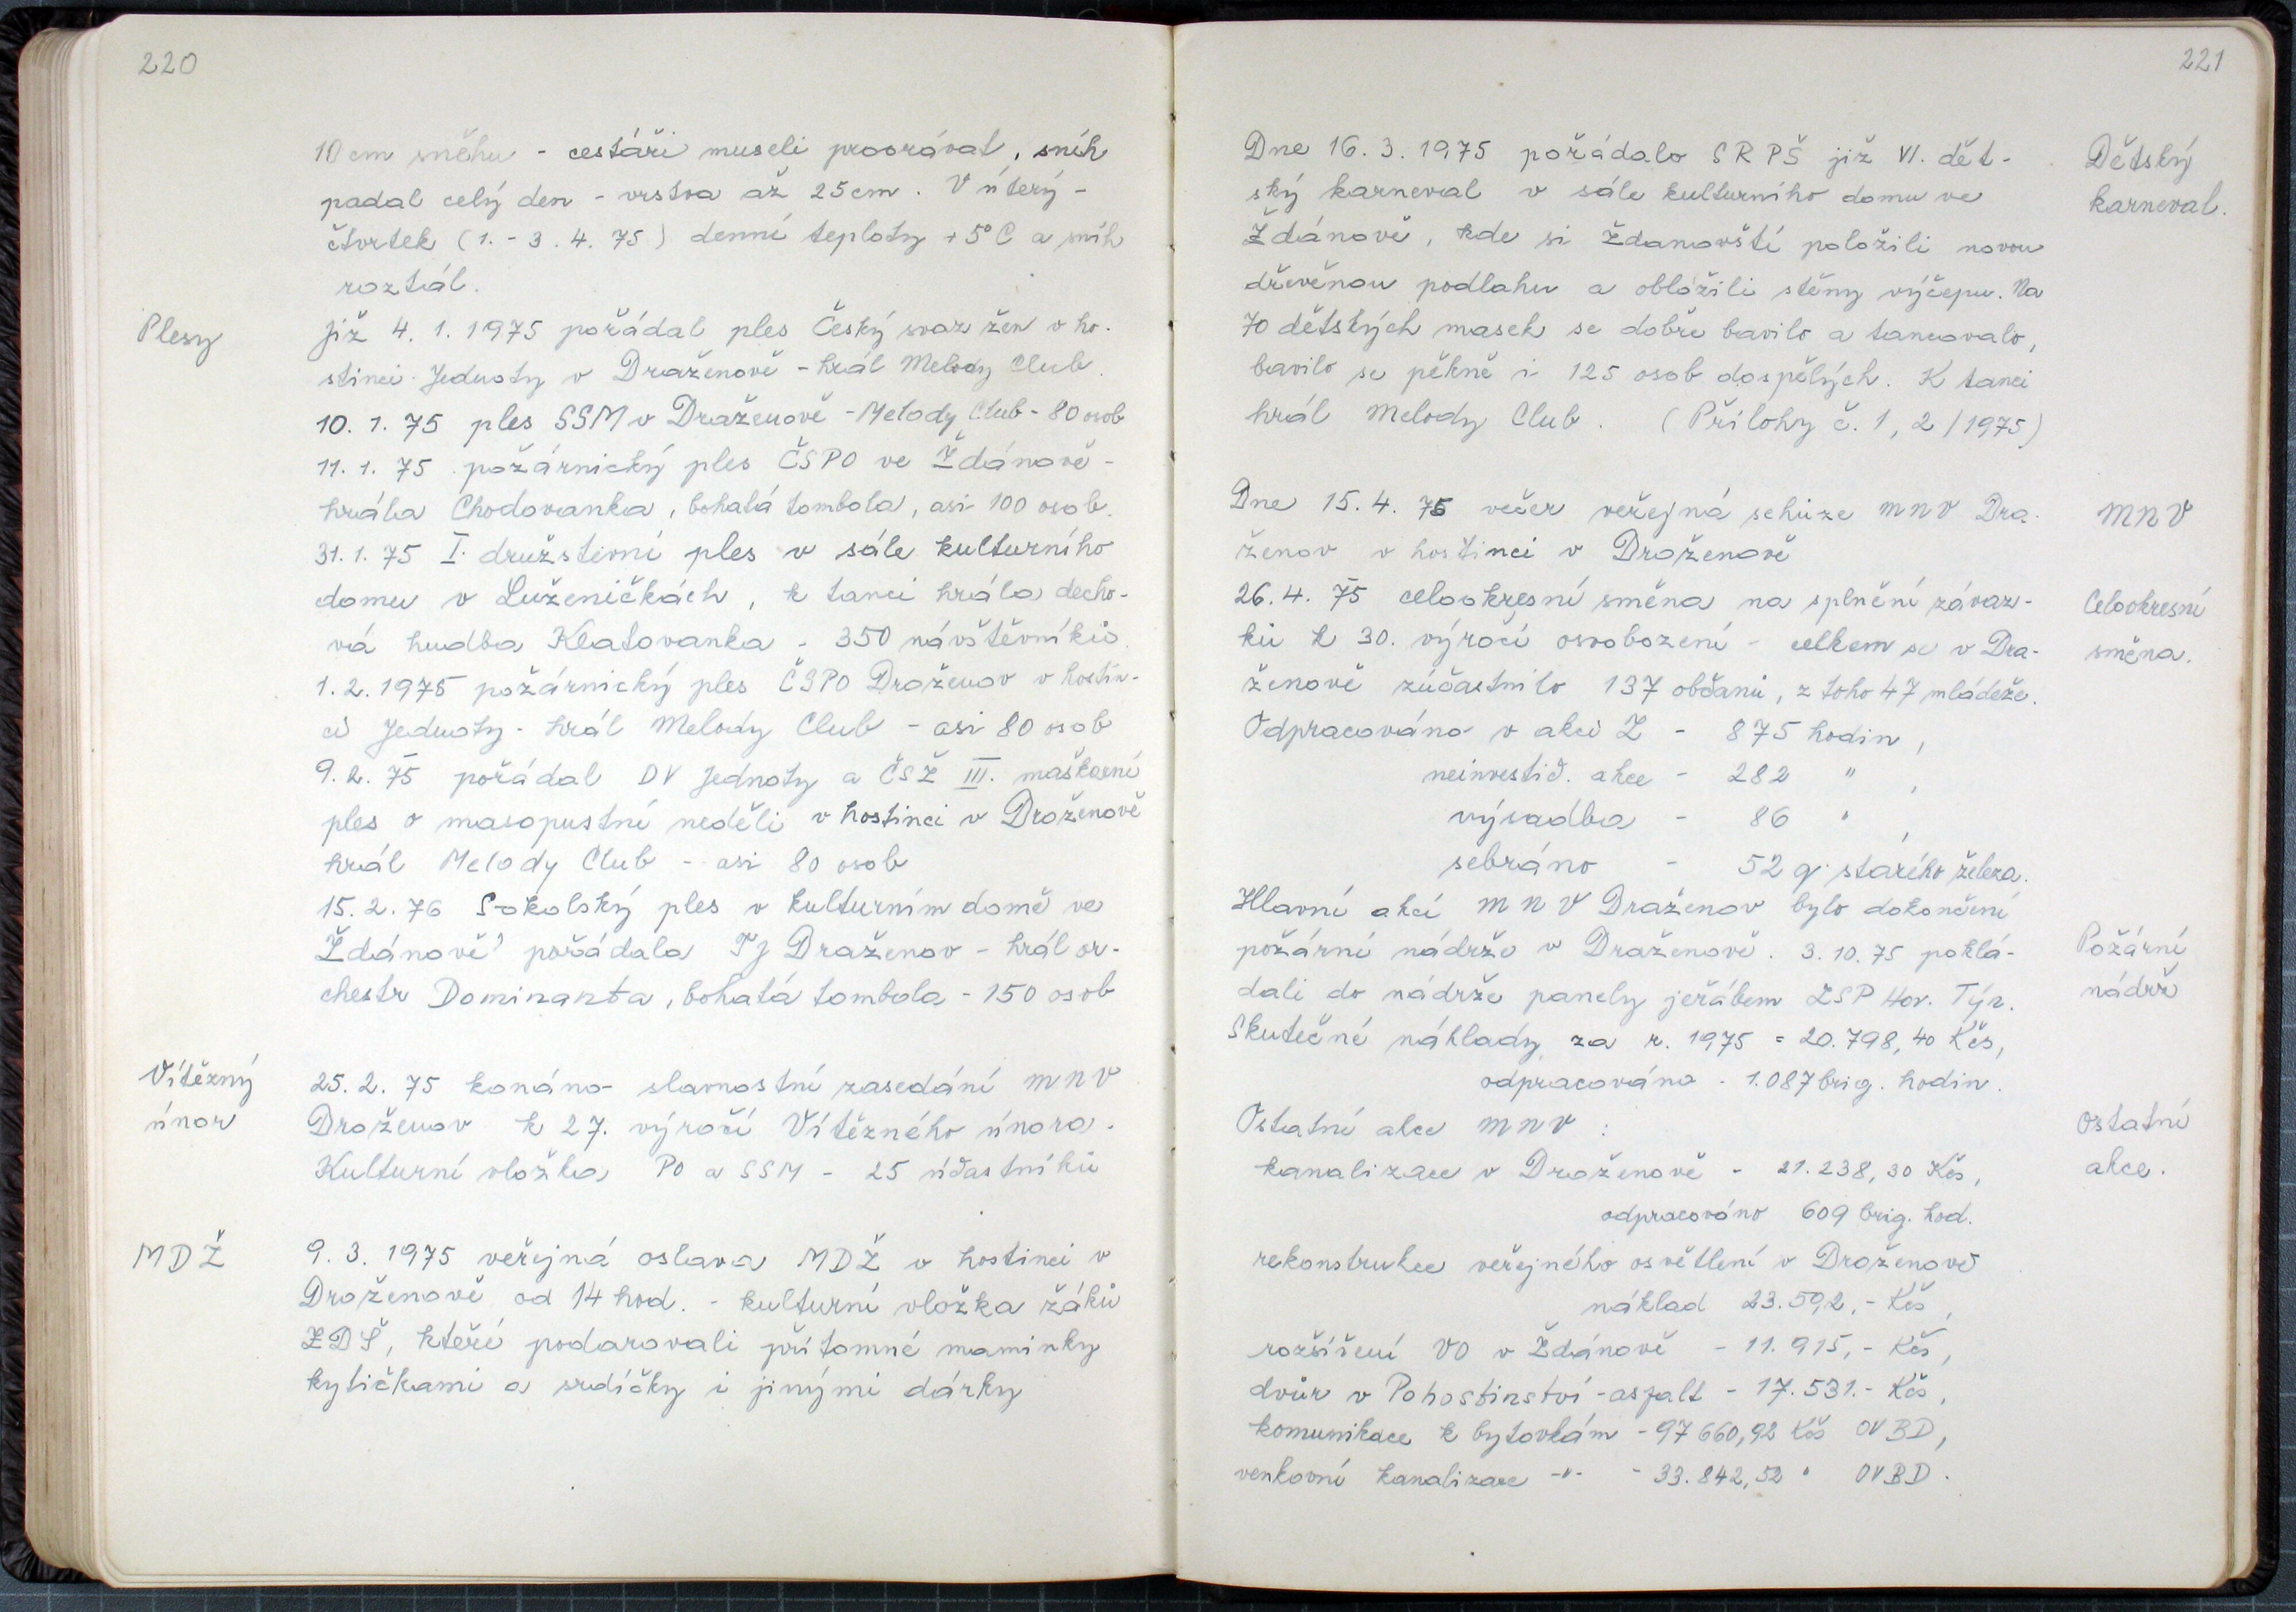 220
10 cm sněhu - cestáři museli proorávat, sníh
padal celý den - vrstva až 25 cm. V úterý -
čtvrtek (1. - 3. 4. 75) denní teploty +5°C a sníh
roztál.
Plesy
Již 4. 1. 1975 pořádal ples Český svaz žen v ho-
stinci Jednoty v Draženově - hrál Melody Club.
10. 1. 75 ples SSM v Draženově - Melody Club - 80 osob
11. 1. 75 požárnický ples ČSPO ve Ždánově -
hrála Chodovanka, bohatá tombola, asi 100 osob.
31. 1. 75 I. družstevní ples v sále kulturního
domu v Luženičkách, k tanci hrála decho-
vá hudba Klatovanka - 350 návštěvníků.
1. 2. 1975 požárnický ples ČSPO Draženov v hostin-
ci Jednoty - hrál Melody Club - asi 80 osob
9. 2. 75 pořádal DV Jednoty a ČSŽ III. maškarní
ples o masopustní neděli v hostinci v Draženově
hrál Melody Club - asi 80 osob
15. 2. 76 Sokolský ples v kulturním domě ve
Ždánově pořádala TJ Draženov - hrál or-
chestr Dominanta, bohatá tombola - 150 osob
Vítězný
únor
25. 2. 75 konáno slavnostní zasedání MNV
Draženov k 27. výročí Vítězného února.
Kulturní vložka PO a SSM - 25 účastníků
MDŽ
9. 3. 1975 veřejná oslava MDŽ v hostinci v
Draženově od 14 hod. - kulturní vložka žáků
ZDŠ, kteří podarovali přítomné maminky
kytičkami a srdíčky i jinými dárky
221
Dne 16. 3. 1975 pořádalo SRPŠ již VI. dět-
ský karneval v sále kulturního domu ve
Ždánově, kde si Ždanovští položili novou
dřevěnou podlahu a obložili stěny výčepu. Na
70 dětských masek se dobře bavilo a tancovalo,
bavilo se pěkně i 125 osob dospělých. K tanci
hrál Melody Club. (Přílohy č. 1, 2 / 1975)
Dětský
karneval.
Dne 15. 4. 75 večer veřejná schůze MNV Dra-
ženov v hostinci v Draženově
MNV
26. 4. 75 celookresní směna na splnění závaz-
ků k 30. výročí osvobození - celkem se v Dra-
ženově zúčastnilo 137 občanů, z toho 47 mládeže.
Celookresní
směna.
Odpracováno v akci Z - 875 hodin,
neinvestič. akce - 282 " ,
výsadba - 86 " ,
sebráno - 52 q starého železa.
Hlavní akcí MNV Draženov bylo dokončení
požární nádrže v Draženově. 3. 10. 75 poklá-
dali do nádrže panely jeřábem ZSP Hor. Týn.
Požární
nádrž
Skutečné náklady za r. 1975 = 20.798,40 Kčs,
odpracováno - 1.087 brig. hodin.
Ostatní akce MNV :
Ostatní
akce.
kanalizace v Draženově - 21.238,30 Kčs,
odpracováno 609 brig. hod.
rekonstrukce veřejného osvětlení v Draženově
náklad 23.592,- Kčs,
rozšíření VO v Ždánově - 11.915,- Kčs,
dvůr v Pohostinství - asfalt - 17.531.- Kčs,
komunikace k bytovkám - 97 660,92 Kčs OVBD,
venkovní kanalizace -"- - 33.842,52 " OVBD.